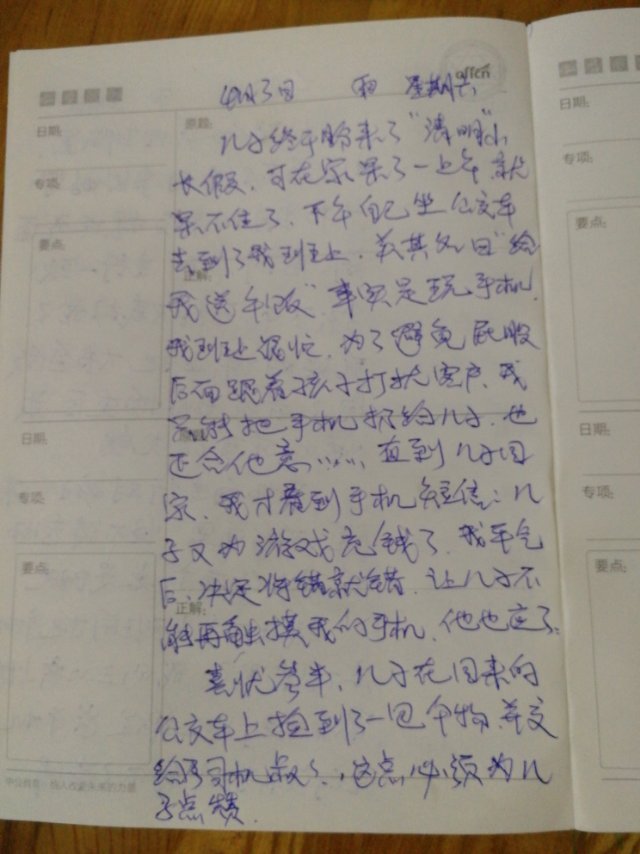 offcn
4月5日 雨 星期六
日期:
原题:
儿子终于盼来了“清明”小
专项:
长假，可在家呆了一上午，就
呆不住了，下午自己坐公交车
要点:
去到了我到班上，美其名曰“给
正解:
我送午饭”，事实是玩手机，
我到班上很忙，为了避免屁股
后面跟着孩子打扰客户，我
只能把手机扔给儿子，也
日期:
正合他意……，直到儿子回
专项:
家，我才看到手机短信：儿
子又为游戏充钱了，我平气
要点:
后，决定将错就错，让儿子不
正解:
能再触摸我的手机，他也应了。
喜忧参半，儿子在回来的
公交车上捡到了一包食物，并交
给了司机叔叔，这点必须为儿
中公教育·给人改变未来的力量
子点赞。
日期:
专项:
要点:
日期:
专项:
要点: